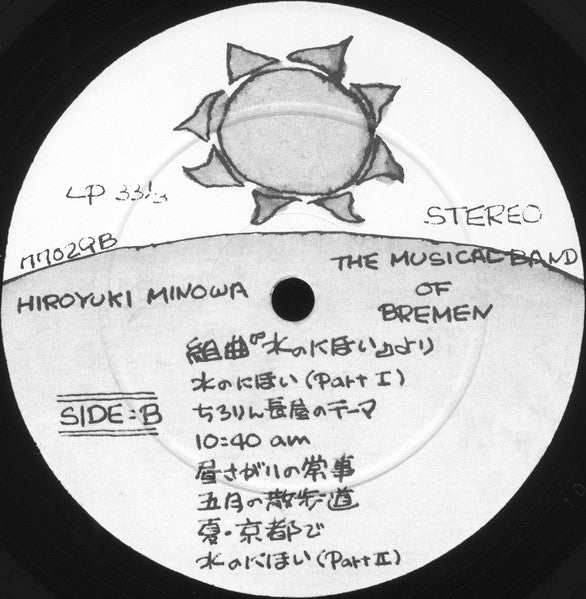 LP 33 1/3
STEREO
77029B
HIROYUKI MINOWA
THE MUSICAL BAND
OF
BREMEN
組曲『水のにほい』より
水のにほい(Part I)
SIDE:B
ちろりん長屋のテーマ
10:40 am
昼さがりの常事
五月の散歩道
夏・京都で
水のにほい(Part II)